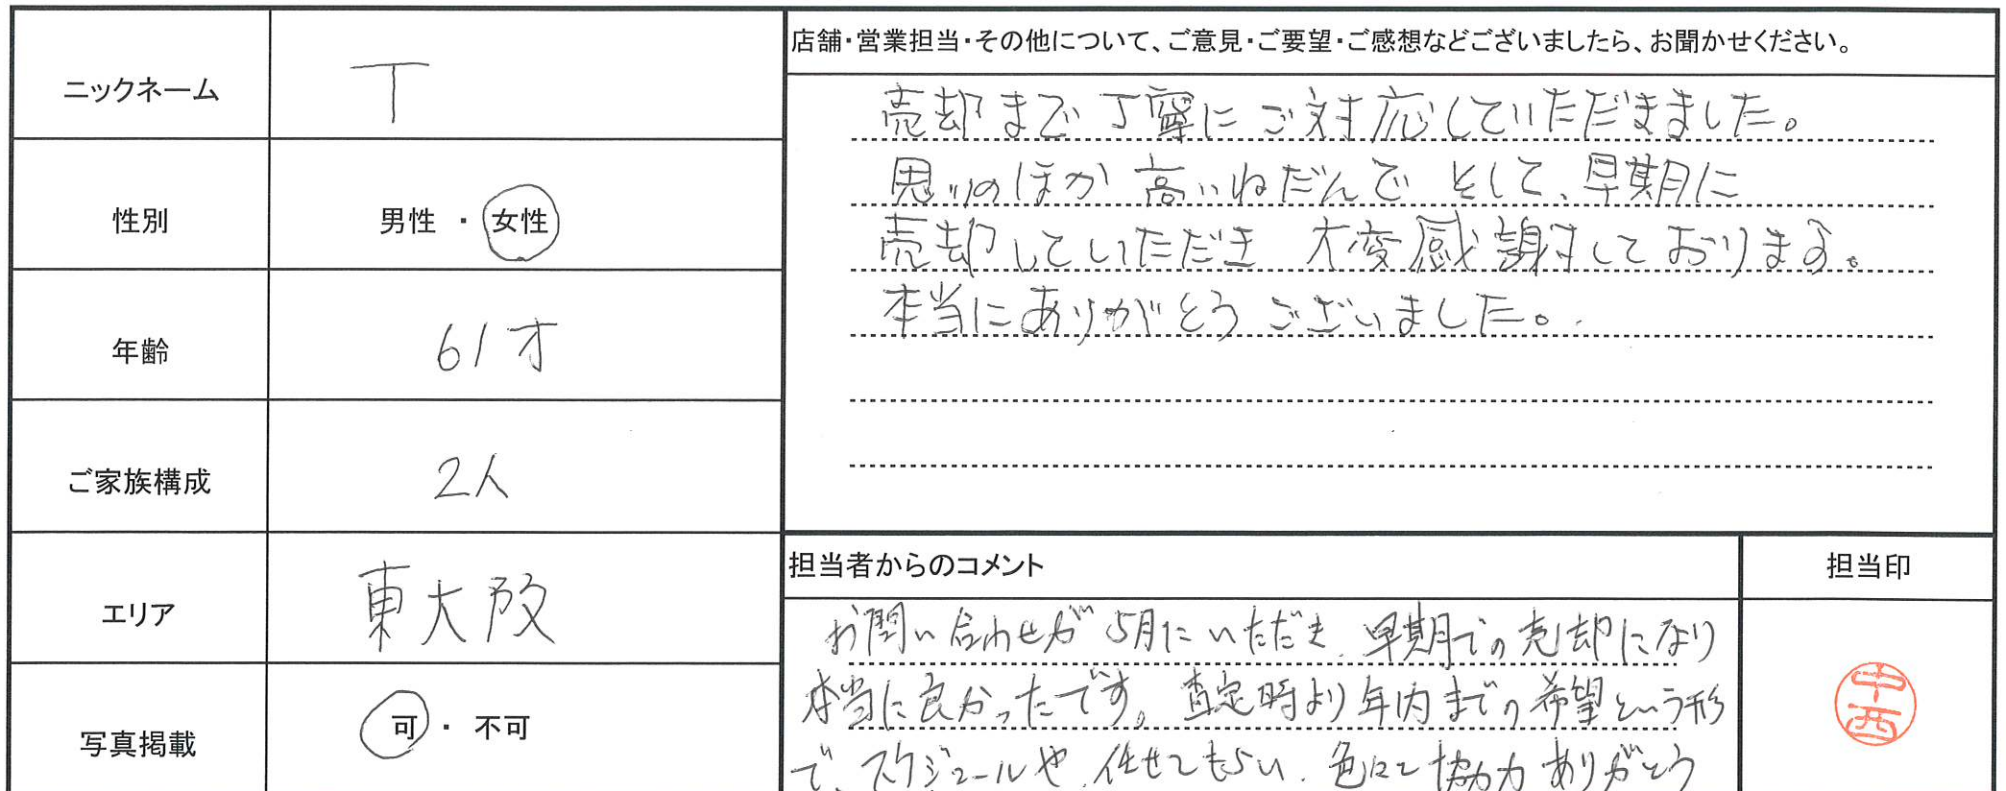 ニックネーム
T
性別
男性 ・ 女性
年齢
61才
ご家族構成
2人
エリア
東大阪
写真掲載
可 ・ 不可
店舗・営業担当・その他について、ご意見・ご要望・ご感想などございましたら、お聞かせください。
売却まで丁寧にご対応していただきました。
思いのほか高いねだんで そして、早期に
売却していただき 大変感謝しております。
本当にありがとうございました。
担当者からのコメント
お問い合わせが5月にいただき、早期での売却になり
本当に良かったです。査定時より年内までの希望という形
で、スケジュールや、任せてもらい、色々と協力ありがとう
担当印
中西